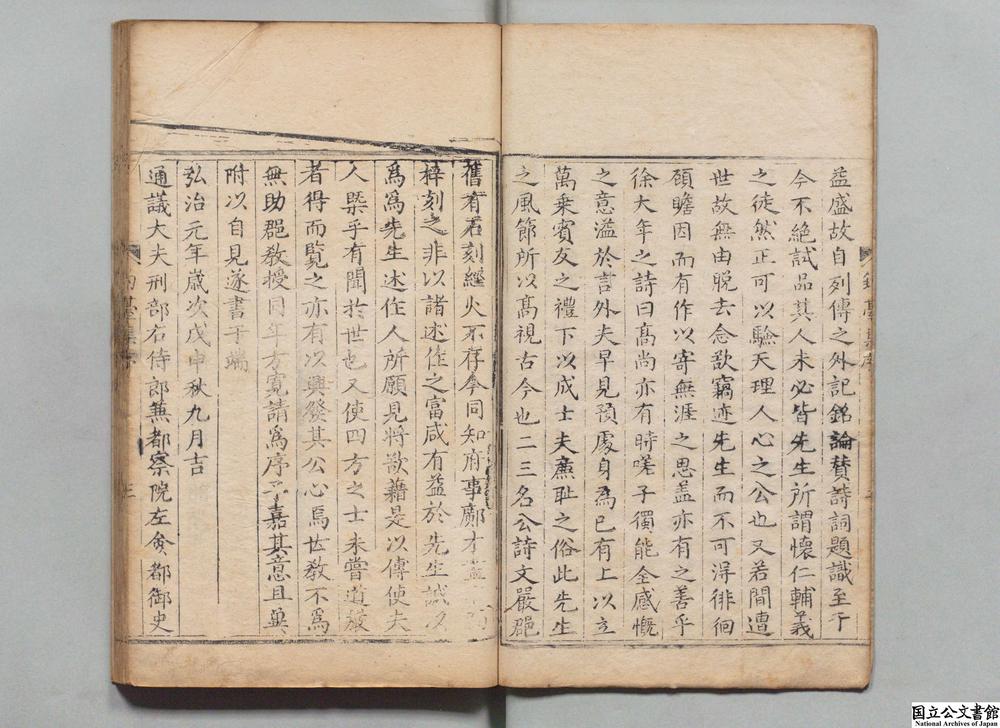 益盛故自列傳之外記銘論賛詩詞題識至于
今不絶試品其人未必皆先生所謂懷仁輔義
之徒然正可以驗天理人心之公也又若間遭
世故無由晚去念欲竊迹先生而不可得徘徊
頋瞻因而有作以寄無涯之思盖亦有之善乎
徐大年之詩曰髙尚亦有時嗟子獨能全感慨
之意溢於言外夫早見預處身為已有上以立
萬乗賓友之禮下以成士夫亷耻之俗此先生
之風節所以髙視古今也二三名公詩文嚴郡
舊有君刻經火不存今同知府事鄺才
梓刻之非以諸述作之富咸有益於先生誠以
為為先生述作人所願見將欲藉是以傳使夫
人槩乎有聞於世也又使四方之士未嘗道嚴
者得而覧之亦有以興發其公心焉世敎不為
無助郡敎授同年方寛請為序予嘉其意且兾
附以自見遂書于端
弘治元年歳次戊申秋九月吉
通議大夫刑部右侍郎兼都察院左僉都御史
釣臺集序
三
国立公文書館
National Archives of Japan